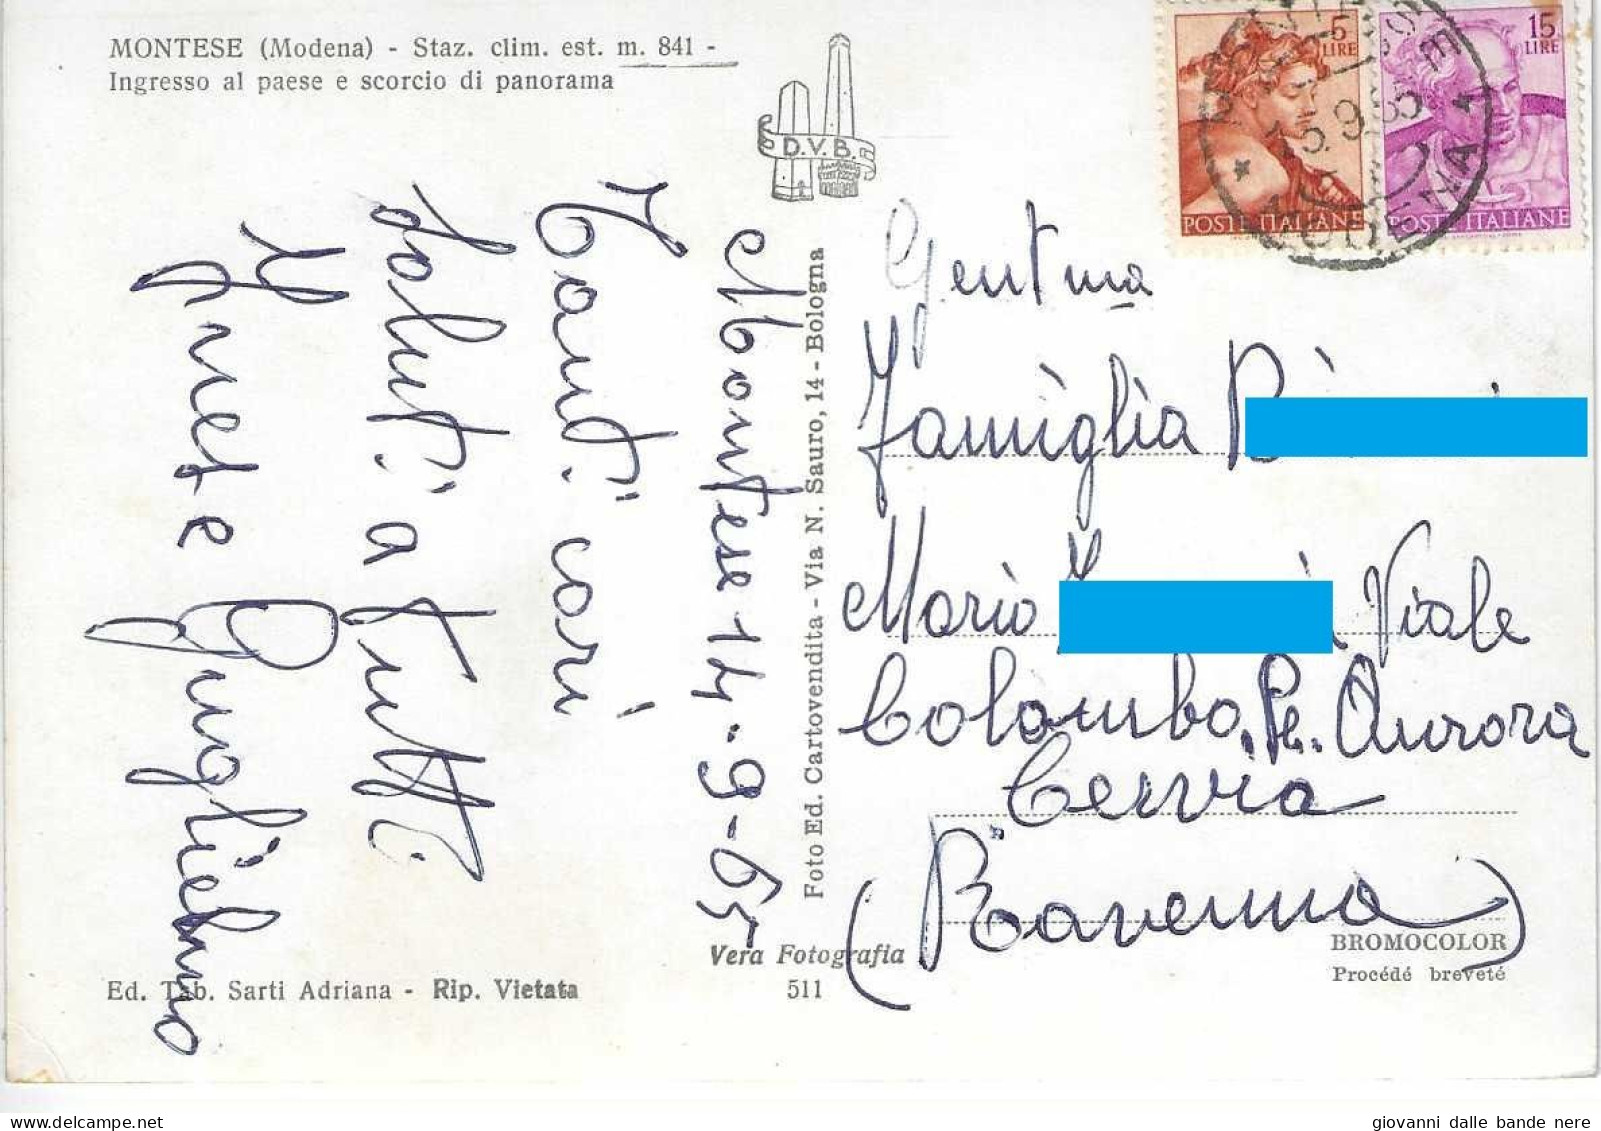 MONTESE (Modena) - Staz. clim. est. m. 841 -
Ingresso al paese e scorcio di panorama
D.V.B.
5
LIRE
POSTE ITALIANE
15
LIRE
POSTE ITALIANE
Montese 14-9-65
Tanti cari
saluti a tutti
Guglielmo
Foto Ed. Cartovendita - Via N. Sauro, 14 - Bologna
Gent ma
Famiglia
Mario Viale
Colombo. Pr. Aurora
Cervia
(Ravenna)
Vera Fotografia
511
BROMOCOLOR
Procédé breveté
Ed. Tab. Sarti Adriana - Rip. Vietata
giovanni dalle bande nere